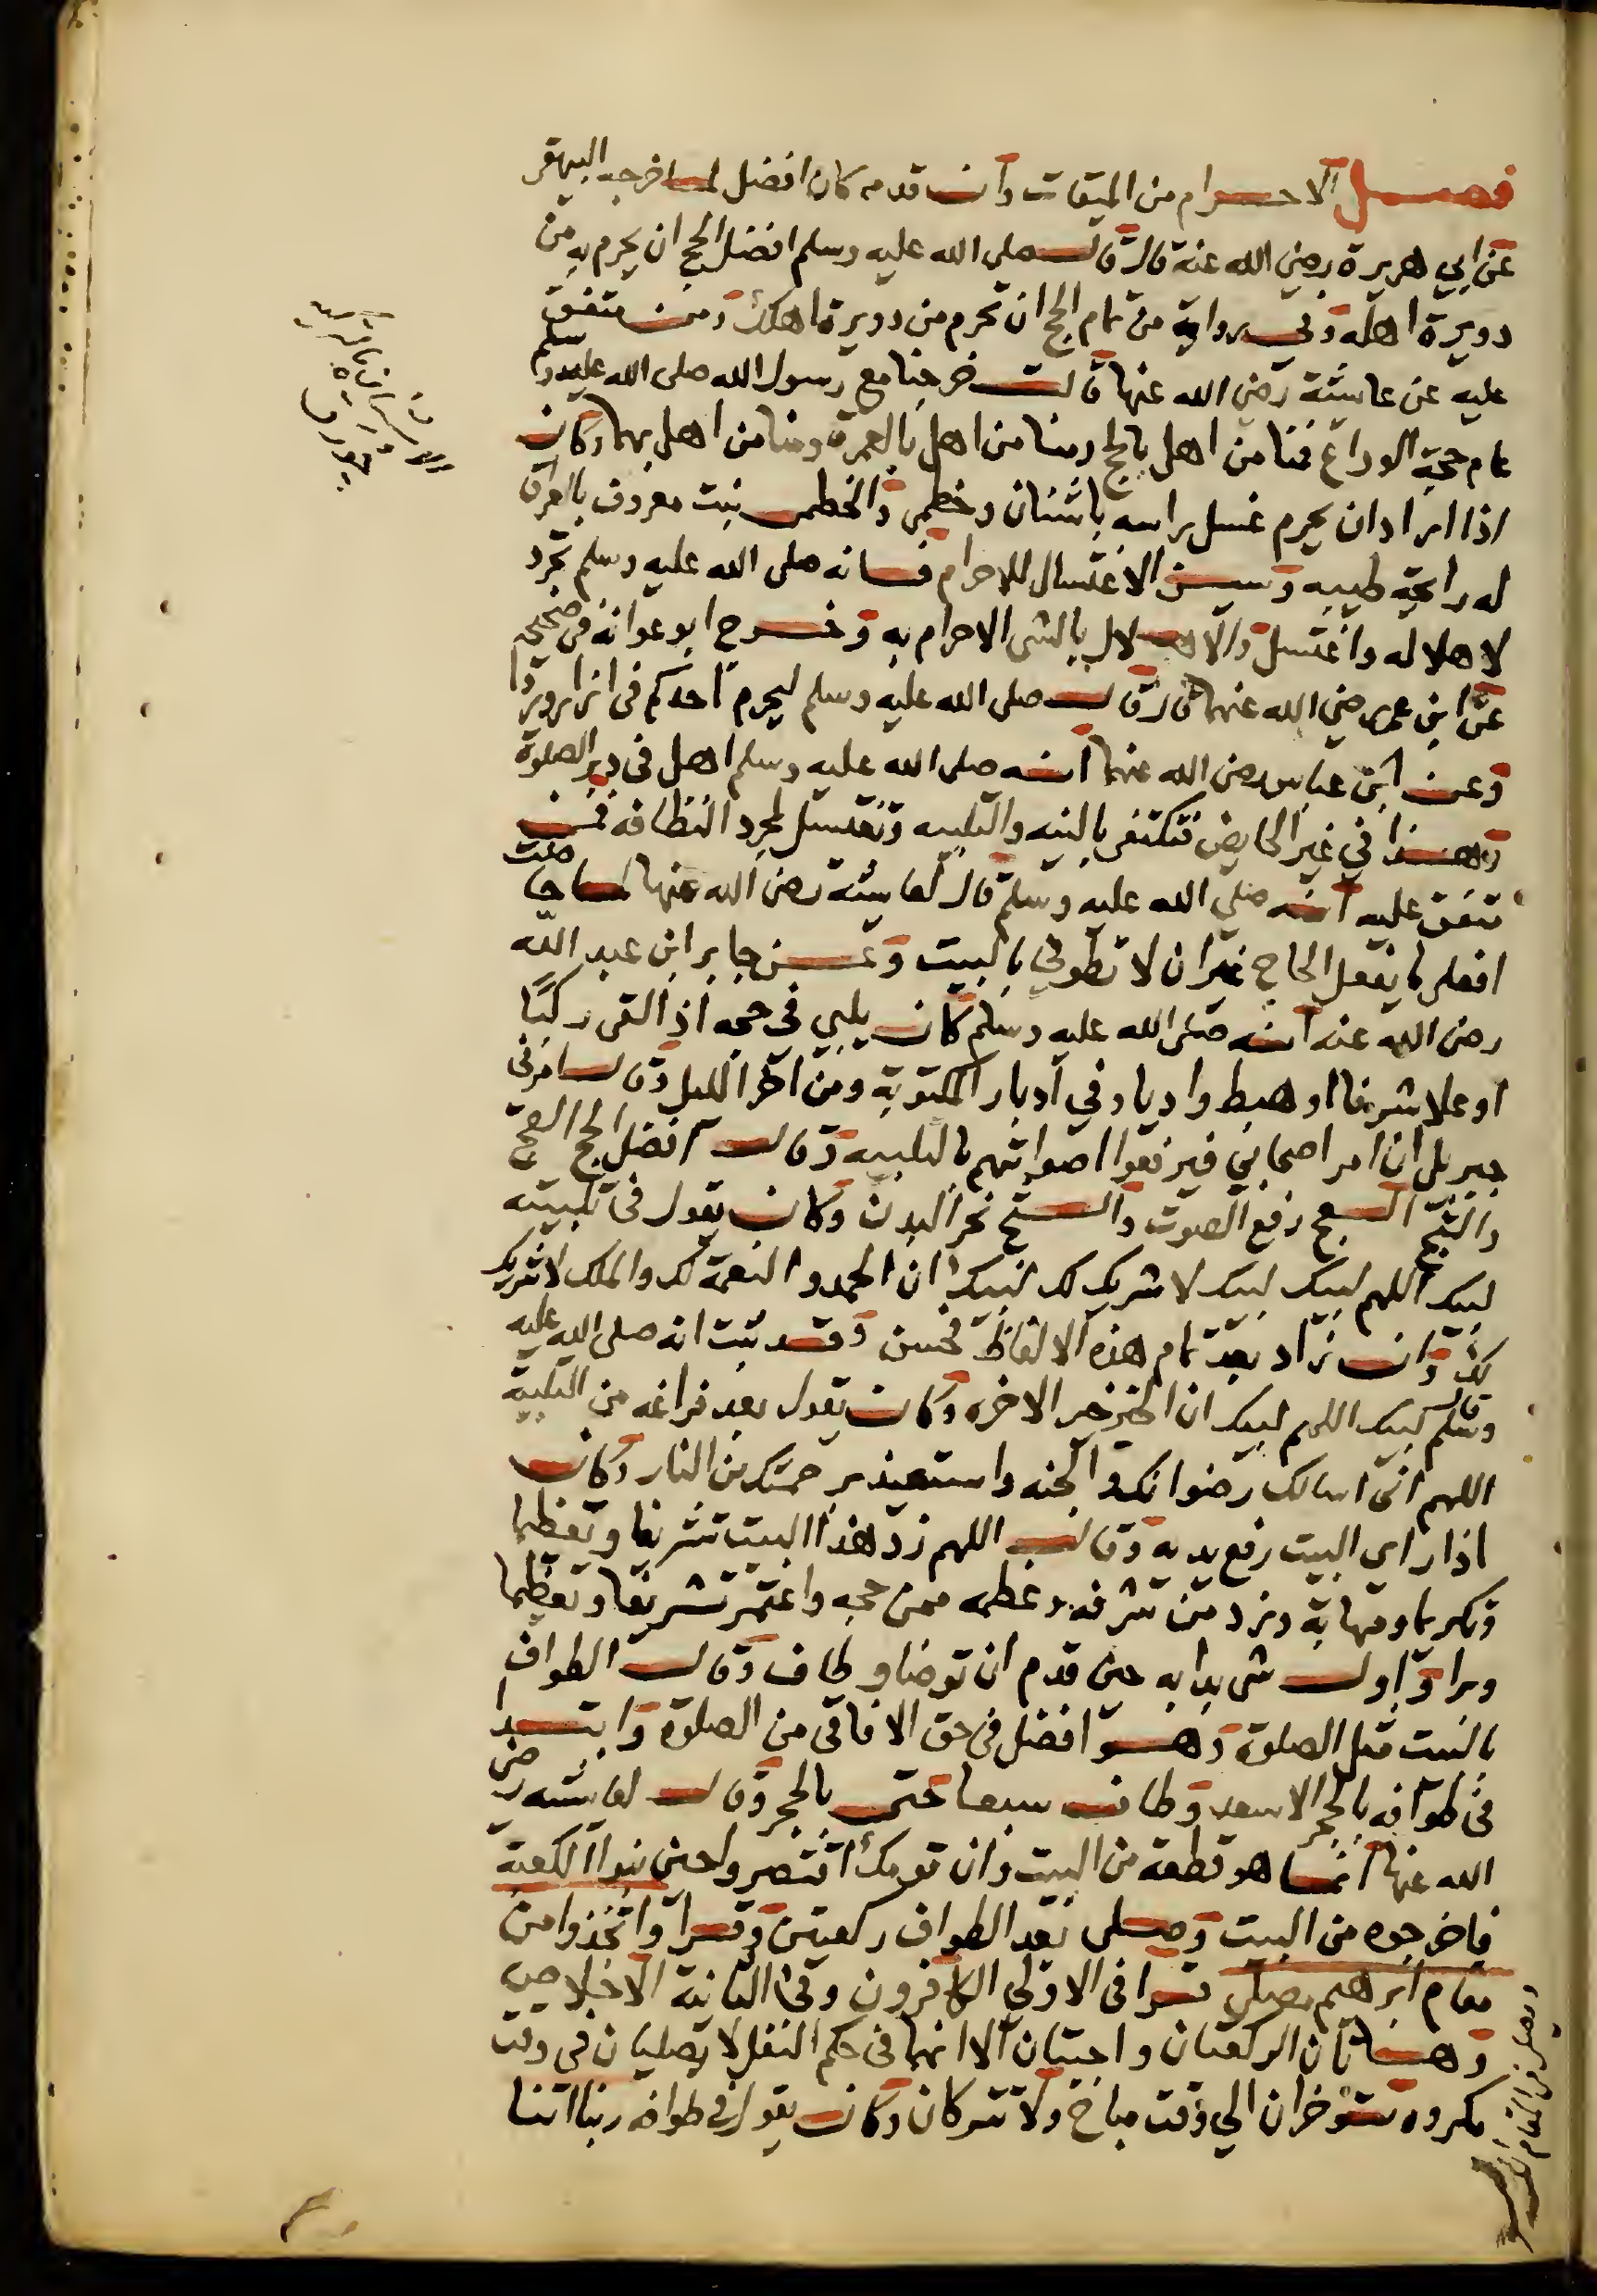 فصل الاحرام من الميقات وان قدم كان افضل لما خرجه البيهقي
عن ابي هريرة رضي الله عنه قال قال صلى الله عليه وسلم افضل الحج ان يحرم به من
دويرة اهله وفي رواية من تمام الحج ان تحرم من دويرة اهلك ومن متفق
عليه عن عائشة رضي الله عنها قالت خرجنا مع رسول الله صلى الله عليه وسلم
عام حجة الوداع فمنا من اهل بالحج ومنا من اهل بالعمرة ومنا من اهل بهما وكان
اذا اراد ان يحرم غسل راسه باشنان وخطمي والخطمي نبت معروف بالعراق
له رايحة طيبه وسن الاغتسال للاحرام فانه صلى الله عليه وسلم تجرد
لاهلاله واغتسل والاهلال بالشي الاحرام به وخرج ابو عوانة في صحيحه
عن ابن عمر رضي الله عنهما قال قال صلى الله عليه وسلم ليحرم احدكم في ازار وردا
وعن ابن عباس رضي الله عنهما انه صلى الله عليه وسلم اهل في دبر الصلوة
وهذا في غير الحايض فتكتفي بالنيه والتلبيه وتغتسل لمجرد النظافه فمن
متفق عليه انه صلي الله عليه وسلم قال لعائشة رضي الله عنها لما حاضت
افعلي ما يفعل الحاج غير ان لا تطوفي بالبيت وعن جابر ابن عبد الله
رضي الله عنه انه صلى الله عليه وسلم كان يلبي في حجه اذ القى ركبًا
او علا شرفا او هبط واديا وفي ادبار المكتوبة ومن اخر الليل وقال امرني
جبريل ان امر اصحابي فيرفعوا اصواتهم بالتلبيه وقال افضل الحج العج
والثج العج رفع الصوت والثج نحر البدن وكان يقول في تلبيته
لبيك اللهم لبيك لبيك لا شريك لك لبيك ان الحمد والنعمة لك والملك لا شريك
لك وان زاد بعد تمام هذه الالفاظ فحسن وقد ثبت انه صلى الله عليه
وسلم قال لبيك اللهم لبيك ان الخير خير الاخره وكان يقول بعد فراغه من التلبية
اللهم اني اسالك رضوانك والجنه واستعيذ برحمتك من النار وكان
اذا راي البيت رفع يديه وقال اللهم زد هذا البيت تشريفا وتعظيما
وتكريما ومهابة وزد من شرفه وعظمه ممن حجه واعتمر تشريفا وتعظيما
وبرا واول شي بدا به حين قدم ان توضا وطاف وقال الطواف
بالبيت مثل الصلوة وهو افضل في حق الافاقي من الصلوة وابتدا
في طوافه بالحجر الاسود وطاف سبعا حتى بالحجر وقال لعائشه رضي
الله عنها انما هو قطعة من البيت وان قومك اقتصروا حين بنوا الكعبة
فاخرجوه من البيت وصلى بعد الطواف ركعتين وقرا واتخذوا من
مقام ابرهيم مصلى قرا في الاولي الكافرون وفي الثانية الاخلاص
وهاتان الركعتان واجبتان الا انهما في حكم النفل لا تصليان في وقت
مكروه تتوخران الي وقت مباح ولا تتركان وكان يقول في طوافه ربنا اتنا